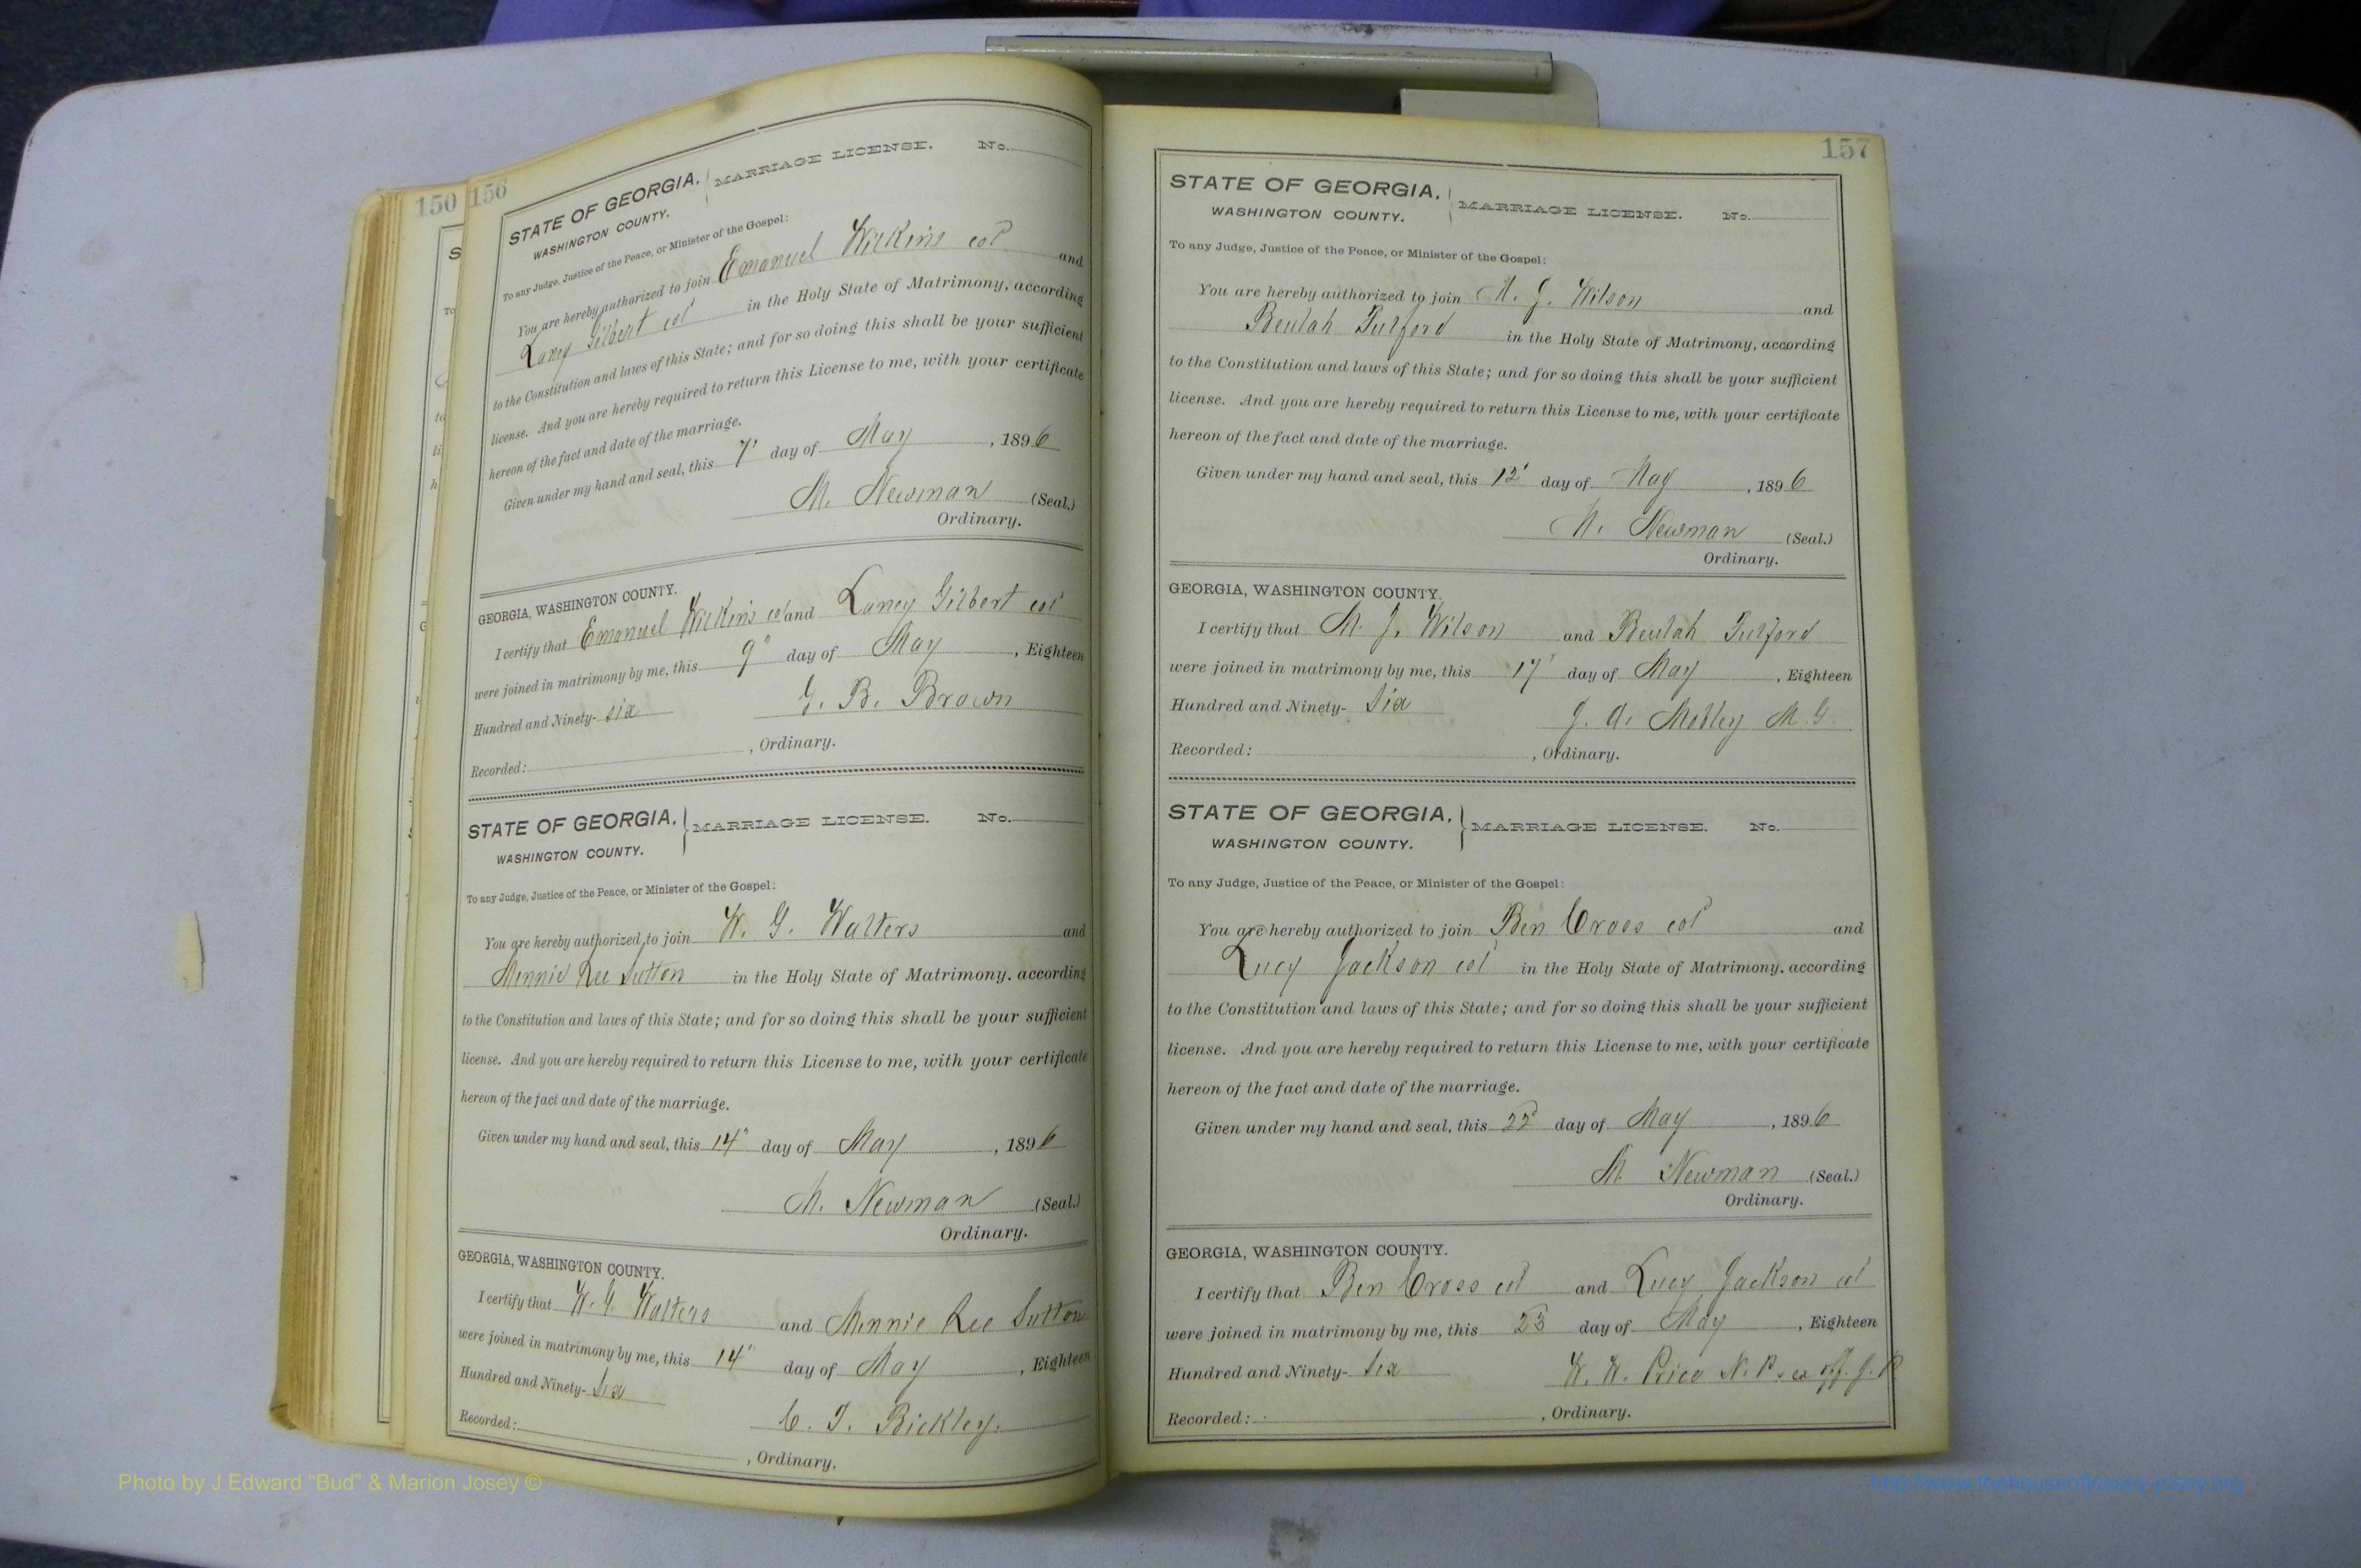 150
156
STATE OF GEORGIA,
WASHINGTON COUNTY.
MARRIAGE LICENSE. No.
To any Judge, Justice of the Peace, or Minister of the Gospel:
You are hereby authorized to join Emanuel Wilkins col and
Laney Gilbert col in the Holy State of Matrimony, according
to the Constitution and laws of this State; and for so doing this shall be your sufficient
license. And you are hereby required to return this License to me, with your certificate
hereon of the fact and date of the marriage.
Given under my hand and seal, this 7' day of May, 1896
M. Newman (Seal.)
Ordinary.
GEORGIA, WASHINGTON COUNTY.
I certify that Emanuel Wilkins col and Laney Gilbert col
were joined in matrimony by me, this 9" day of May, Eighteen
Hundred and Ninety-six
G. B. Brown
Recorded: , Ordinary.
STATE OF GEORGIA,
WASHINGTON COUNTY.
MARRIAGE LICENSE. No.
To any Judge, Justice of the Peace, or Minister of the Gospel:
You are hereby authorized to join W. G. Walters and
Minnie Lee Sutton in the Holy State of Matrimony. according
to the Constitution and laws of this State; and for so doing this shall be your sufficient
license. And you are hereby required to return this License to me, with your certificate
hereon of the fact and date of the marriage.
Given under my hand and seal, this 14" day of May, 1896
M. Newman (Seal.)
Ordinary.
GEORGIA, WASHINGTON COUNTY.
I certify that W. G. Walters and Minnie Lee Sutton
were joined in matrimony by me, this 14" day of May, Eighteen
Hundred and Ninety-six
C. T. Bickley.
Recorded: , Ordinary.
157
STATE OF GEORGIA,
WASHINGTON COUNTY.
MARRIAGE LICENSE. No.
To any Judge, Justice of the Peace, or Minister of the Gospel:
You are hereby authorized to join M. J. Wilson and
Beulah Fulford in the Holy State of Matrimony, according
to the Constitution and laws of this State; and for so doing this shall be your sufficient
license. And you are hereby required to return this License to me, with your certificate
hereon of the fact and date of the marriage.
Given under my hand and seal, this 12' day of May, 1896
M. Newman (Seal.)
Ordinary.
GEORGIA, WASHINGTON COUNTY.
I certify that M. J. Wilson and Beulah Fulford
were joined in matrimony by me, this 17' day of May, Eighteen
Hundred and Ninety-six
J. A. Mobley M. G.
Recorded: , Ordinary.
STATE OF GEORGIA,
WASHINGTON COUNTY.
MARRIAGE LICENSE. No.
To any Judge, Justice of the Peace, or Minister of the Gospel:
You are hereby authorized to join Ben Cross col and
Lucy Jackson col in the Holy State of Matrimony. according
to the Constitution and laws of this State; and for so doing this shall be your sufficient
license. And you are hereby required to return this License to me, with your certificate
hereon of the fact and date of the marriage.
Given under my hand and seal, this 22 day of May, 1896
M. Newman (Seal.)
Ordinary.
GEORGIA, WASHINGTON COUNTY.
I certify that Ben Cross col and Lucy Jackson col
were joined in matrimony by me, this 23 day of May, Eighteen
Hundred and Ninety-six
W. W. Price N. P. ex off. J. P.
Recorded: , Ordinary.
Photo by J Edward “Bud” & Marion Josey ©